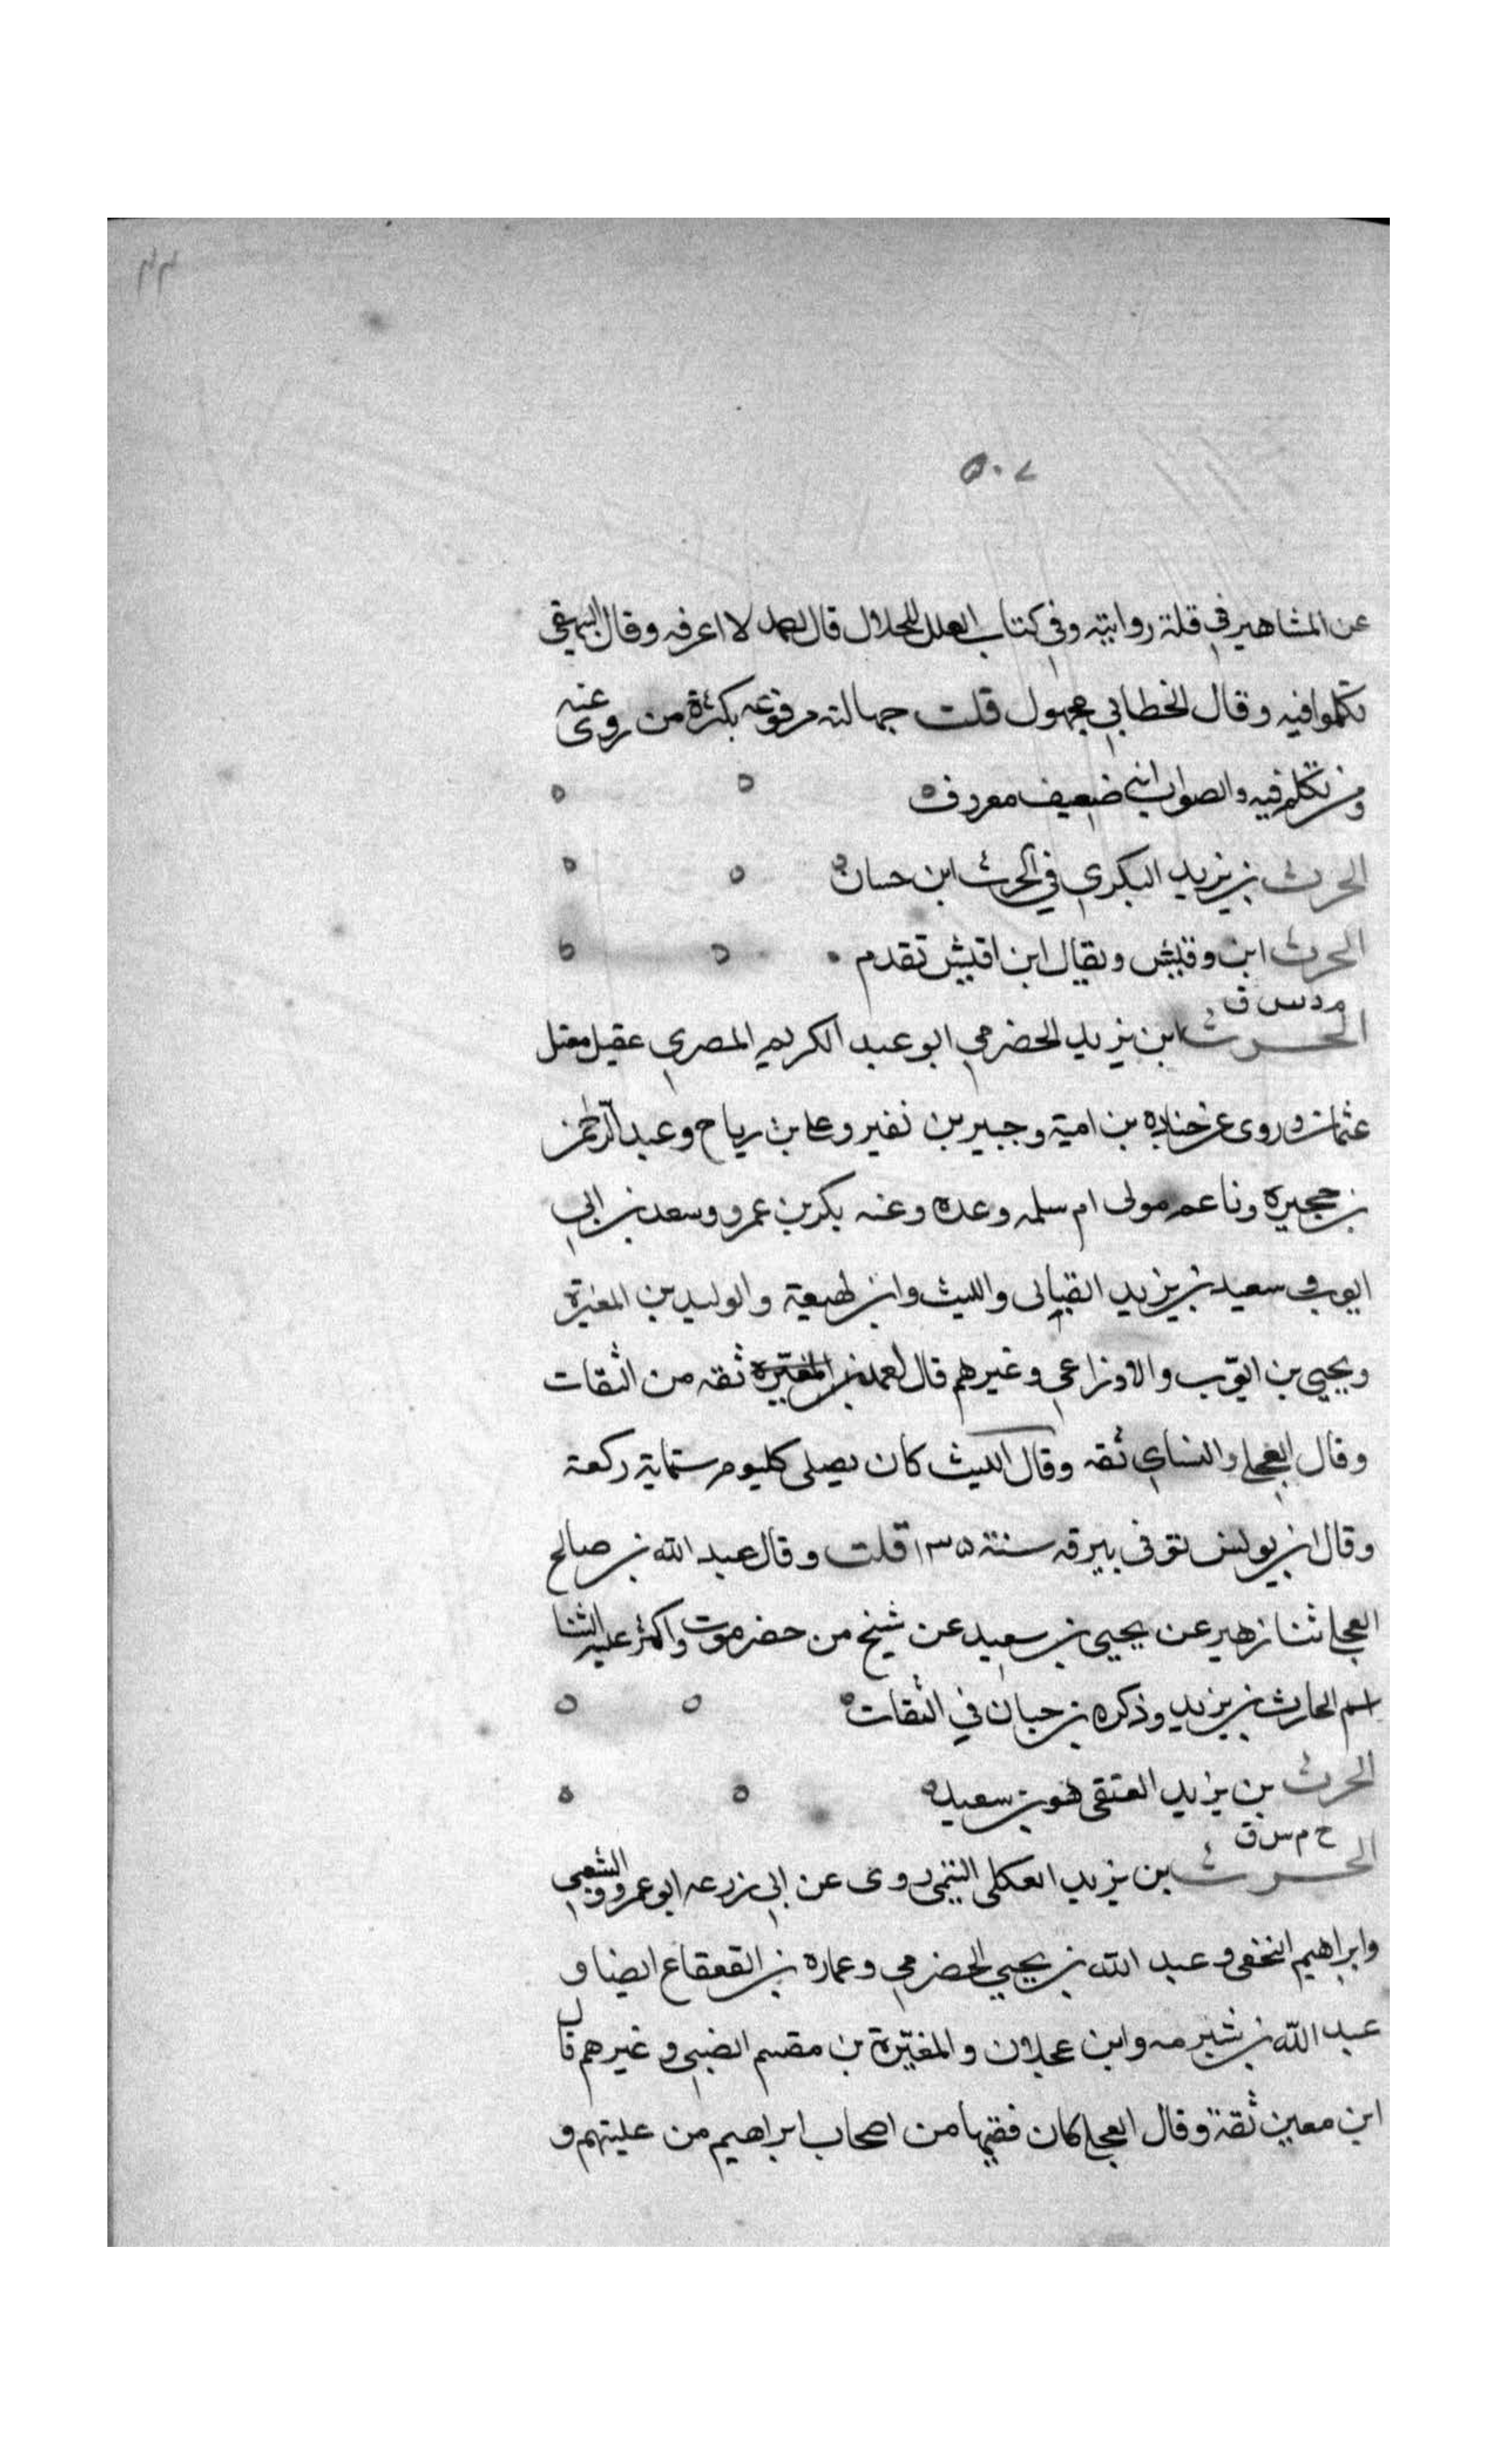 ٥٠٧
عن المشاهير في قلة روايته وفي كتاب العلل للخلال قال احمد لا اعرفه وقال البيهقي
تكلموا فيه وقال الخطابي مجهول قلت جهالته مرفوعه بكثرة من روى عنه
ومن تكلم فيه والصواب انه ضعيف معروف
الحرث بن يزيد البكري في الحرث ابن حسان
الحرث ابن وقيش ويقال ابن اقيش تقدم
م د س ق
الحرث ابن يزيد الحضرمي ابو عبد الكريم المصري عقيل مقتل
عثمان وروى عن جناده بن امية وجبير بن نفير وعلي بن رياح وعبد الرحمن
بن حجيره وناعم مولى ام سلمه وعده وعنه بكر بن عمرو وسعد بن ابي
ايوب وسعيد بن يزيد القباني والليث وابن لهيعة والوليد بن المغيرة
ويحيى بن ايوب والاوزاعي وغيرهم قال احمد بن المغيره ثقه من الثقات
وقال العجلي والنساي ثقه وقال الليث كان يصلي كليوم ستماية ركعة
وقال ابن يونس توفى ببرقه سنة ١٣٥ قلت وقال عبد الله بن صالح
العجلي ثنا زهير عن يحيى بن سعيد عن شيخ من حضرموت واكثر عليه الثنا
اسم الحارث بن يزيد وذكره بن حبان في الثقات
الحرث بن يزيد العتقي هو بن سعيد
خ م س ق
الحرث بن يزيد العكلي التيمي روى عن ابي زرعه ابو عمرو والشعبي
وابراهيم النخعي وعبد الله بن يحيى الحضرمي وعماره بن القعقاع ايضا و
عبد الله بن شبرمه وابن عجلان والمغيّرة بن مقسم الضبي وغيرهم قال
ابن معين ثقة وقال العجلي كان فقيها من اصحاب ابراهيم من عليتهم و